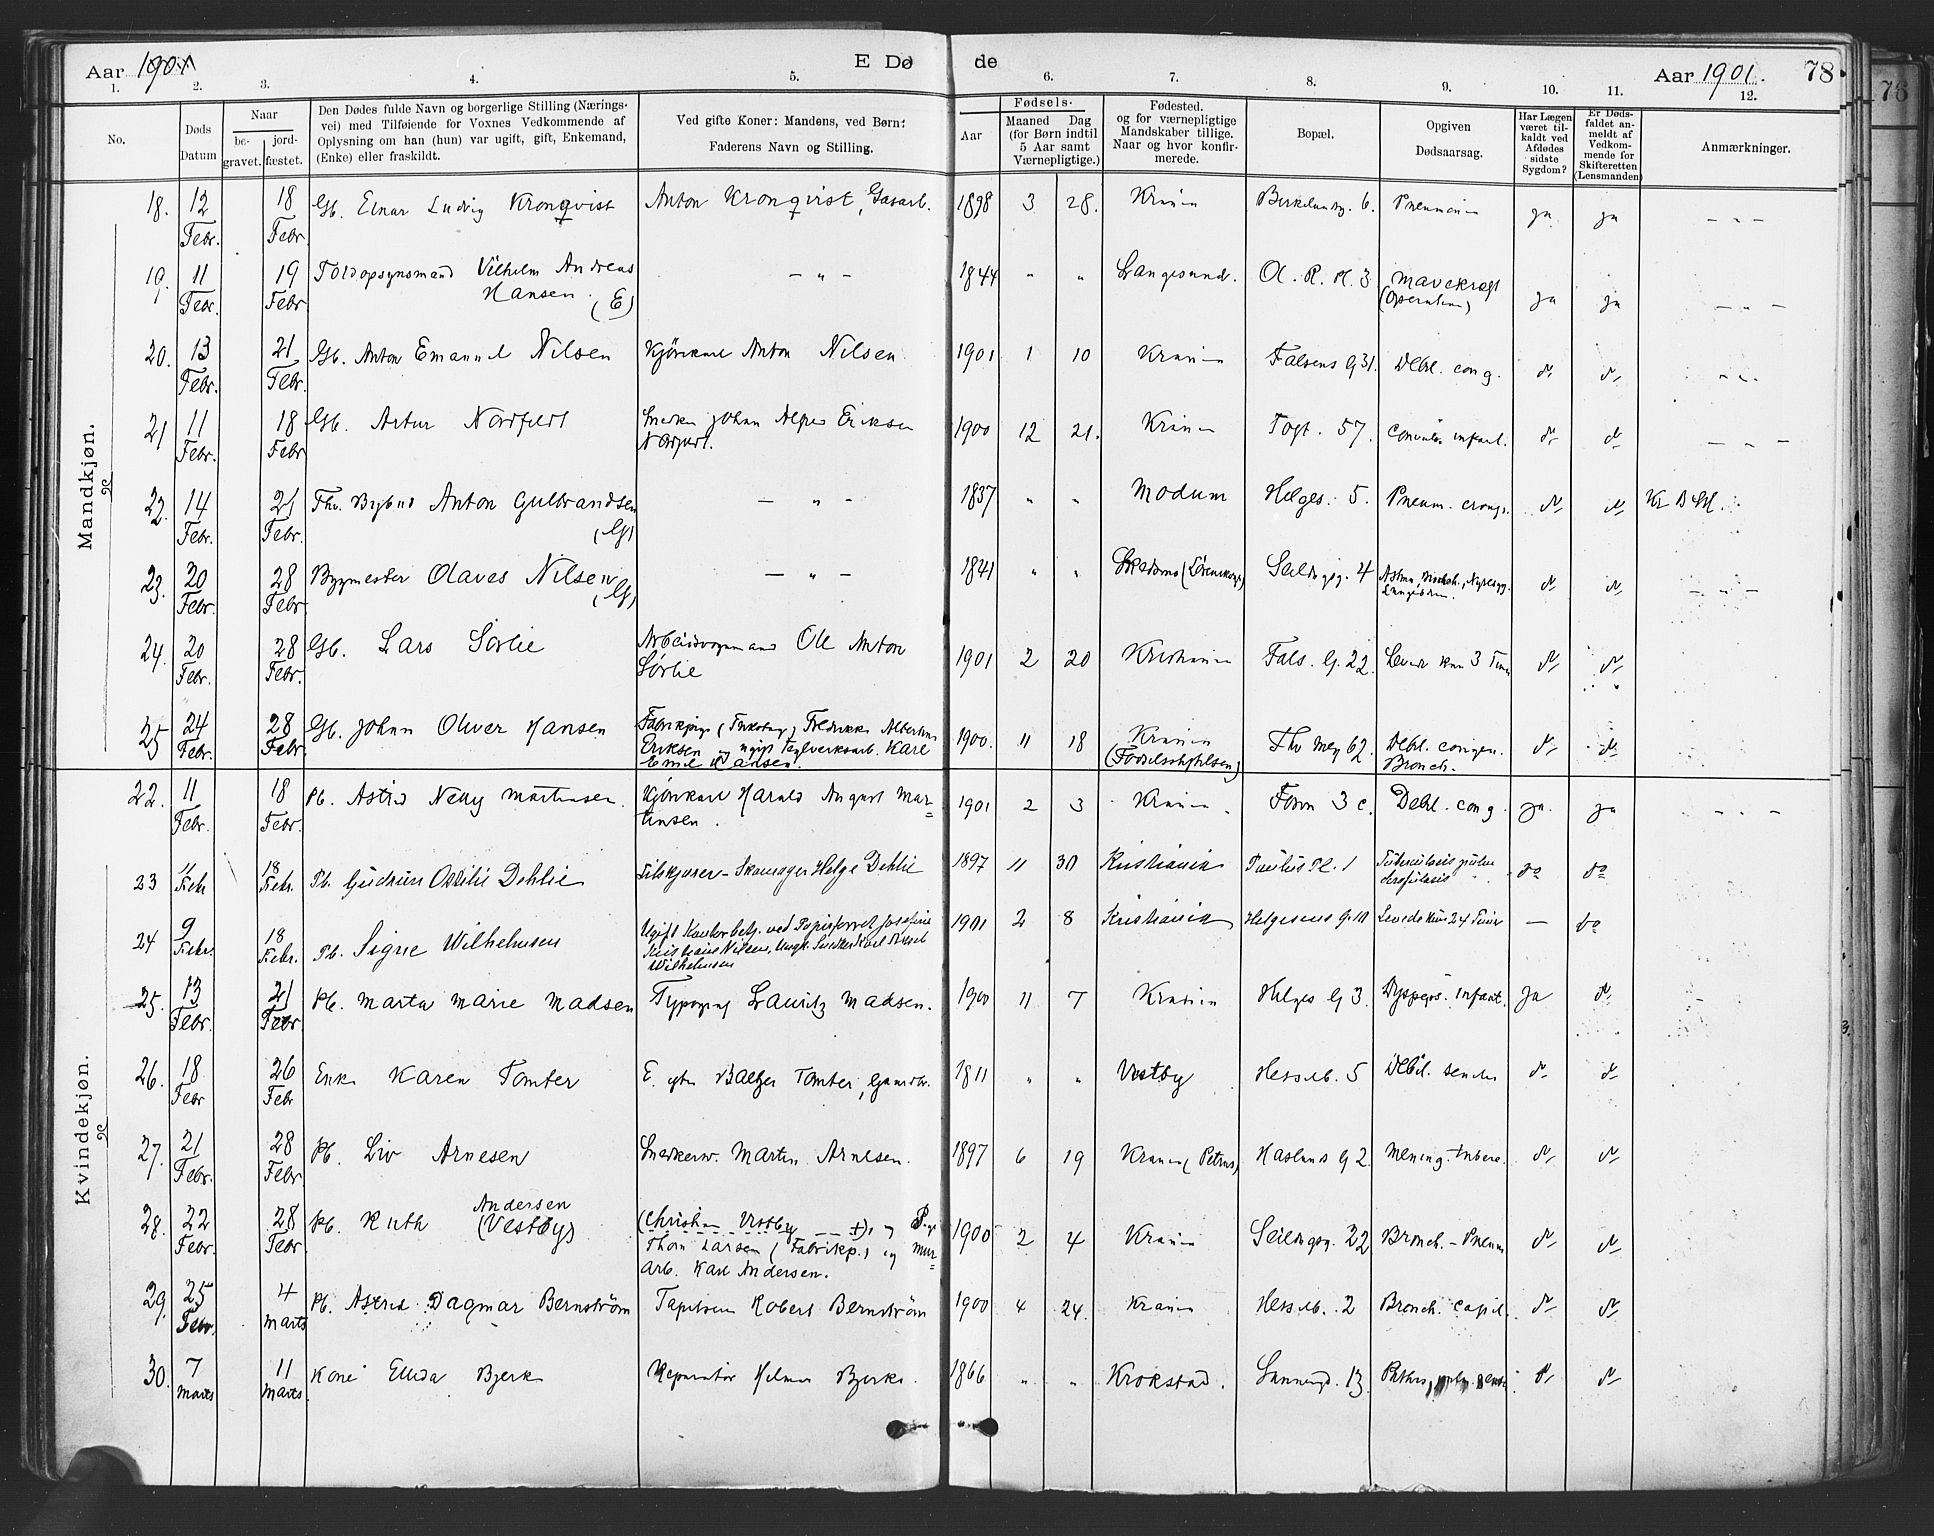 Aar 1901
E Dø de
Aar 1901.
78
1. 2. 3. 4. 5. 6. 7. 8. 9. 10. 11. 12.
No.
Døds Datum
Naar
be- gravet.
jord- fæstet.
Den Dødes fulde Navn og borgerlige Stilling (Nærings-
vei) med Tilføiende for Voxnes Vedkommende af
Oplysning om han (hun) var ugift, gift, Enkemand,
(Enke) eller fraskildt.
Ved gifte Koner: Mandens, ved Børn:
Faderens Navn og Stilling.
Fødsels-
Aar
Maaned Dag
(for Børn indtil
5 Aar samt
Værnepligtige.)
Fødested.
og for værnepligtige
Mandskaber tillige.
Naar og hvor konfir-
merede.
Bopæl.
Opgiven
Dødsaarsag.
Har Lægen
været til-
kaldt ved
Afdødes
sidste
Sygdom?
Er Døds-
faldet an-
meldt af
Vedkom-
mende for
Skifteretten
(Lensmanden)
Anmærkninger.
Mandkjøn.
18. 12 Febr. 18 Febr. Gb. Einar Ludvig Kronqvist Anton Kronqvist, Gasarb. 1898 3 28. Krania Birkelundg. 6. Pneumonia ja ja – „ –
19. 11 Febr. 19 Febr. Toldopsynsmand Vilhelm Andreas – „ – 1844 „ „ Langesund. Ol. R. Pl. 3 Mavekræft
Hansen. (E) (Operation) ja ja – „ –
20. 13 Febr. 21 Febr. Gb. Anton Emanuel Nilsen Kjørekarl Anton Nilsen 1901 1 10 Krania Falsens G 31. Debil. cong. do do – „ –
21 11 Febr. 18 Febr. Gb. Artur Norfeldt Snedker Johan Alfred Eriksen 1900 12 21. Krania Togt. 57. Convuls. infant. do do – „ –
22. 14 Febr. 21 Febr. Fhv. Anton Gulbrandsen (G) – „ – 1837 „ „ Modum Helges. 5. Pneum. croup. do do Kr
23. 20 Febr. 28 Febr. Bygmester Olaves Nilsen (G) – „ – 1841 „ „ Skedsmo Seildugsg. 4 do do – „ –
24. 20 Febr. 28 Febr. Gb. Lars Sørlie Ole Anton
Sørlie 1901 2 20 Kristiania Fals. G. 22 Levede kun 3 Timer do do
25 24 Febr. 28 Febr. Gb. Johan Oliver Hansen Fabrikpige Fredrikke
Eriksen og ugift Teglverksarb. Karl
Emil Hansen. 1900. 11 18 Krania
(Fødselsstiftelsen) Thv Mey 62. Debil. congen.
Bronch. do do
Kvindekjøn.
22. 11 Febr. 18 Febr. Pb. Astrid Nelly Martinsen. Kjørekarl Harald August Mar-
tinsen. 1901 2 3 Krania. Foss 3 c. Debil. cong. ja. ja – „ –
23 11 Febr. 18 Febr. Pb. Gudrun Ottilie Dehlie Tilskjærer - Skomager Helge Dehlie 1897 11 30 Kristiania Paulus Pl. 1 Tuberculosis do do
24 9 Febr. 18 Febr. Pb. Signe Wilhelmsen Ugift Josefine
Kristiane Nilsen, Ungk. Snedker Karl
Wilhelmsen 1901 2 8 Kristiania Helgesens G. 10 Levede kun 24 Timer — do
25. 13 Febr. 21 Febr. Pb. Marta Marie Madsen Typograf Lauritz Madsen. 1900 11 7 Krania Helges G 3. Dyspeps. infant. ja do
26. 18 Febr 26 Febr Enke Karen Tomter E. efter Baltzer Tomter, Gaardbr. 1811 „ „ Vestby Hesselb. 5 Debil. senilis do do
27. 21 Febr. 28 Febr Pb. Liv Arnesen Snedkersv. Martin Arnesen. 1897 6 19 Krania (Petrus) Haslums G 2. Mening. tuberc. do do
28. 22 Febr. 28 Febr. Pb. Ruth Andersen (Vestby) (Christian Vestby
Thora Larsen (Fabrikp.) og Mur-
arb. Karl Andersen. 1900 2 4 Krania Seildugsg. 22 Bronch. – Pneum do do
29. 25 Febr. 4 Marts Pb. Astrid Dagmar Bernström Tapetserer Robert Bernström 1900 4 24. Krania Hesselb. 2 Bronch. capil. do do
30. 7 Marts 11 Marts Kone Elida Bjerke Reparatør Hilmar Bjerke. 1866 „ „ Krokstad. Sannergt. 13 do do